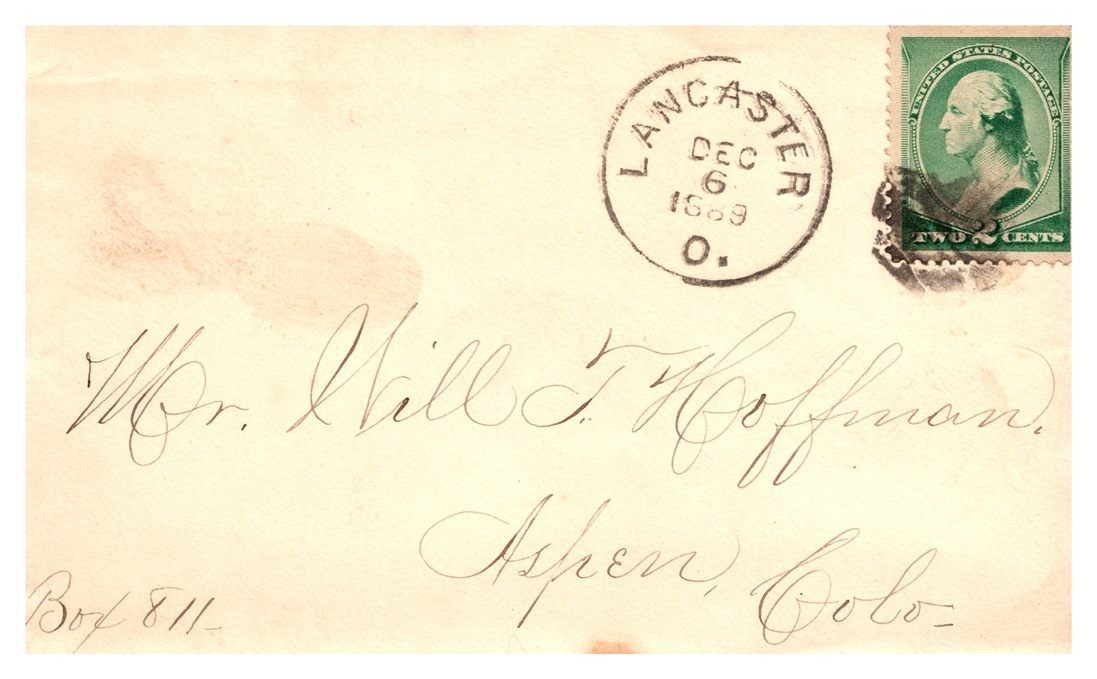 LANCASTER
DEC
6
1889
O.
UNITED STATES POSTAGE
TWO 2 CENTS
Mr. Will T. Hoffman.
Aspen, Colo-
Box 811-